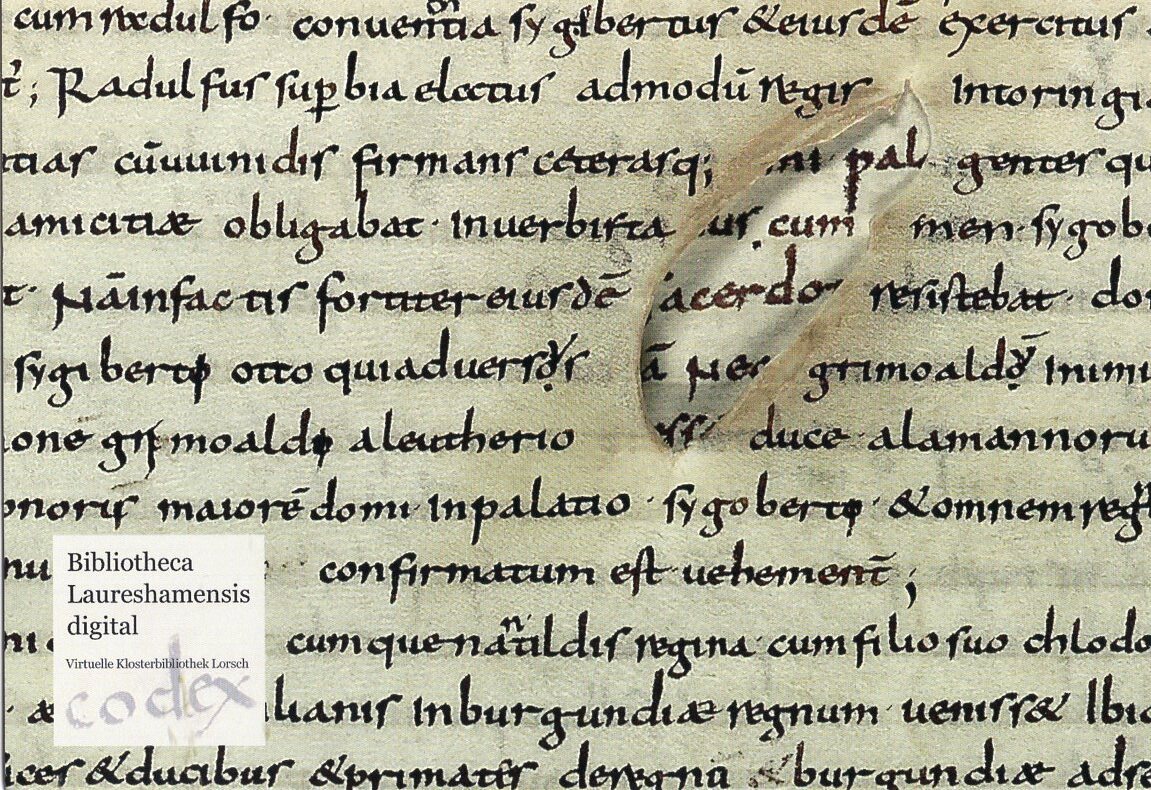 cum radulfo conuentia sygibertus &eiusdē exercitus
Radulfus supbia electus admodū regis Intoringi
tias cūuuinidis firmans ceterasq; ni pal gentes qu
amicitiæ obligabat Inuerbista us cum men sygob
t Nāinfactis fortiter eiusdē acerdo resistebat do
sygiberto otto quiaduersus ā Ner grimoaldo Inimi
one grimoaldo aleutherio duce alamannoru
onoris maiorē domi Inpalatio sygoberto &omnem reg
nu confirmatum est uehement ;
cumque natildis regina cumfilio suo chlodo
lianis Inburgundiæ regnum uenisse& lbi
ices &ducibus &primates deregnū burgundiæ adse
Bibliotheca
Laureshamensis
digital
Virtuelle Klosterbibliothek Lorsch
codex